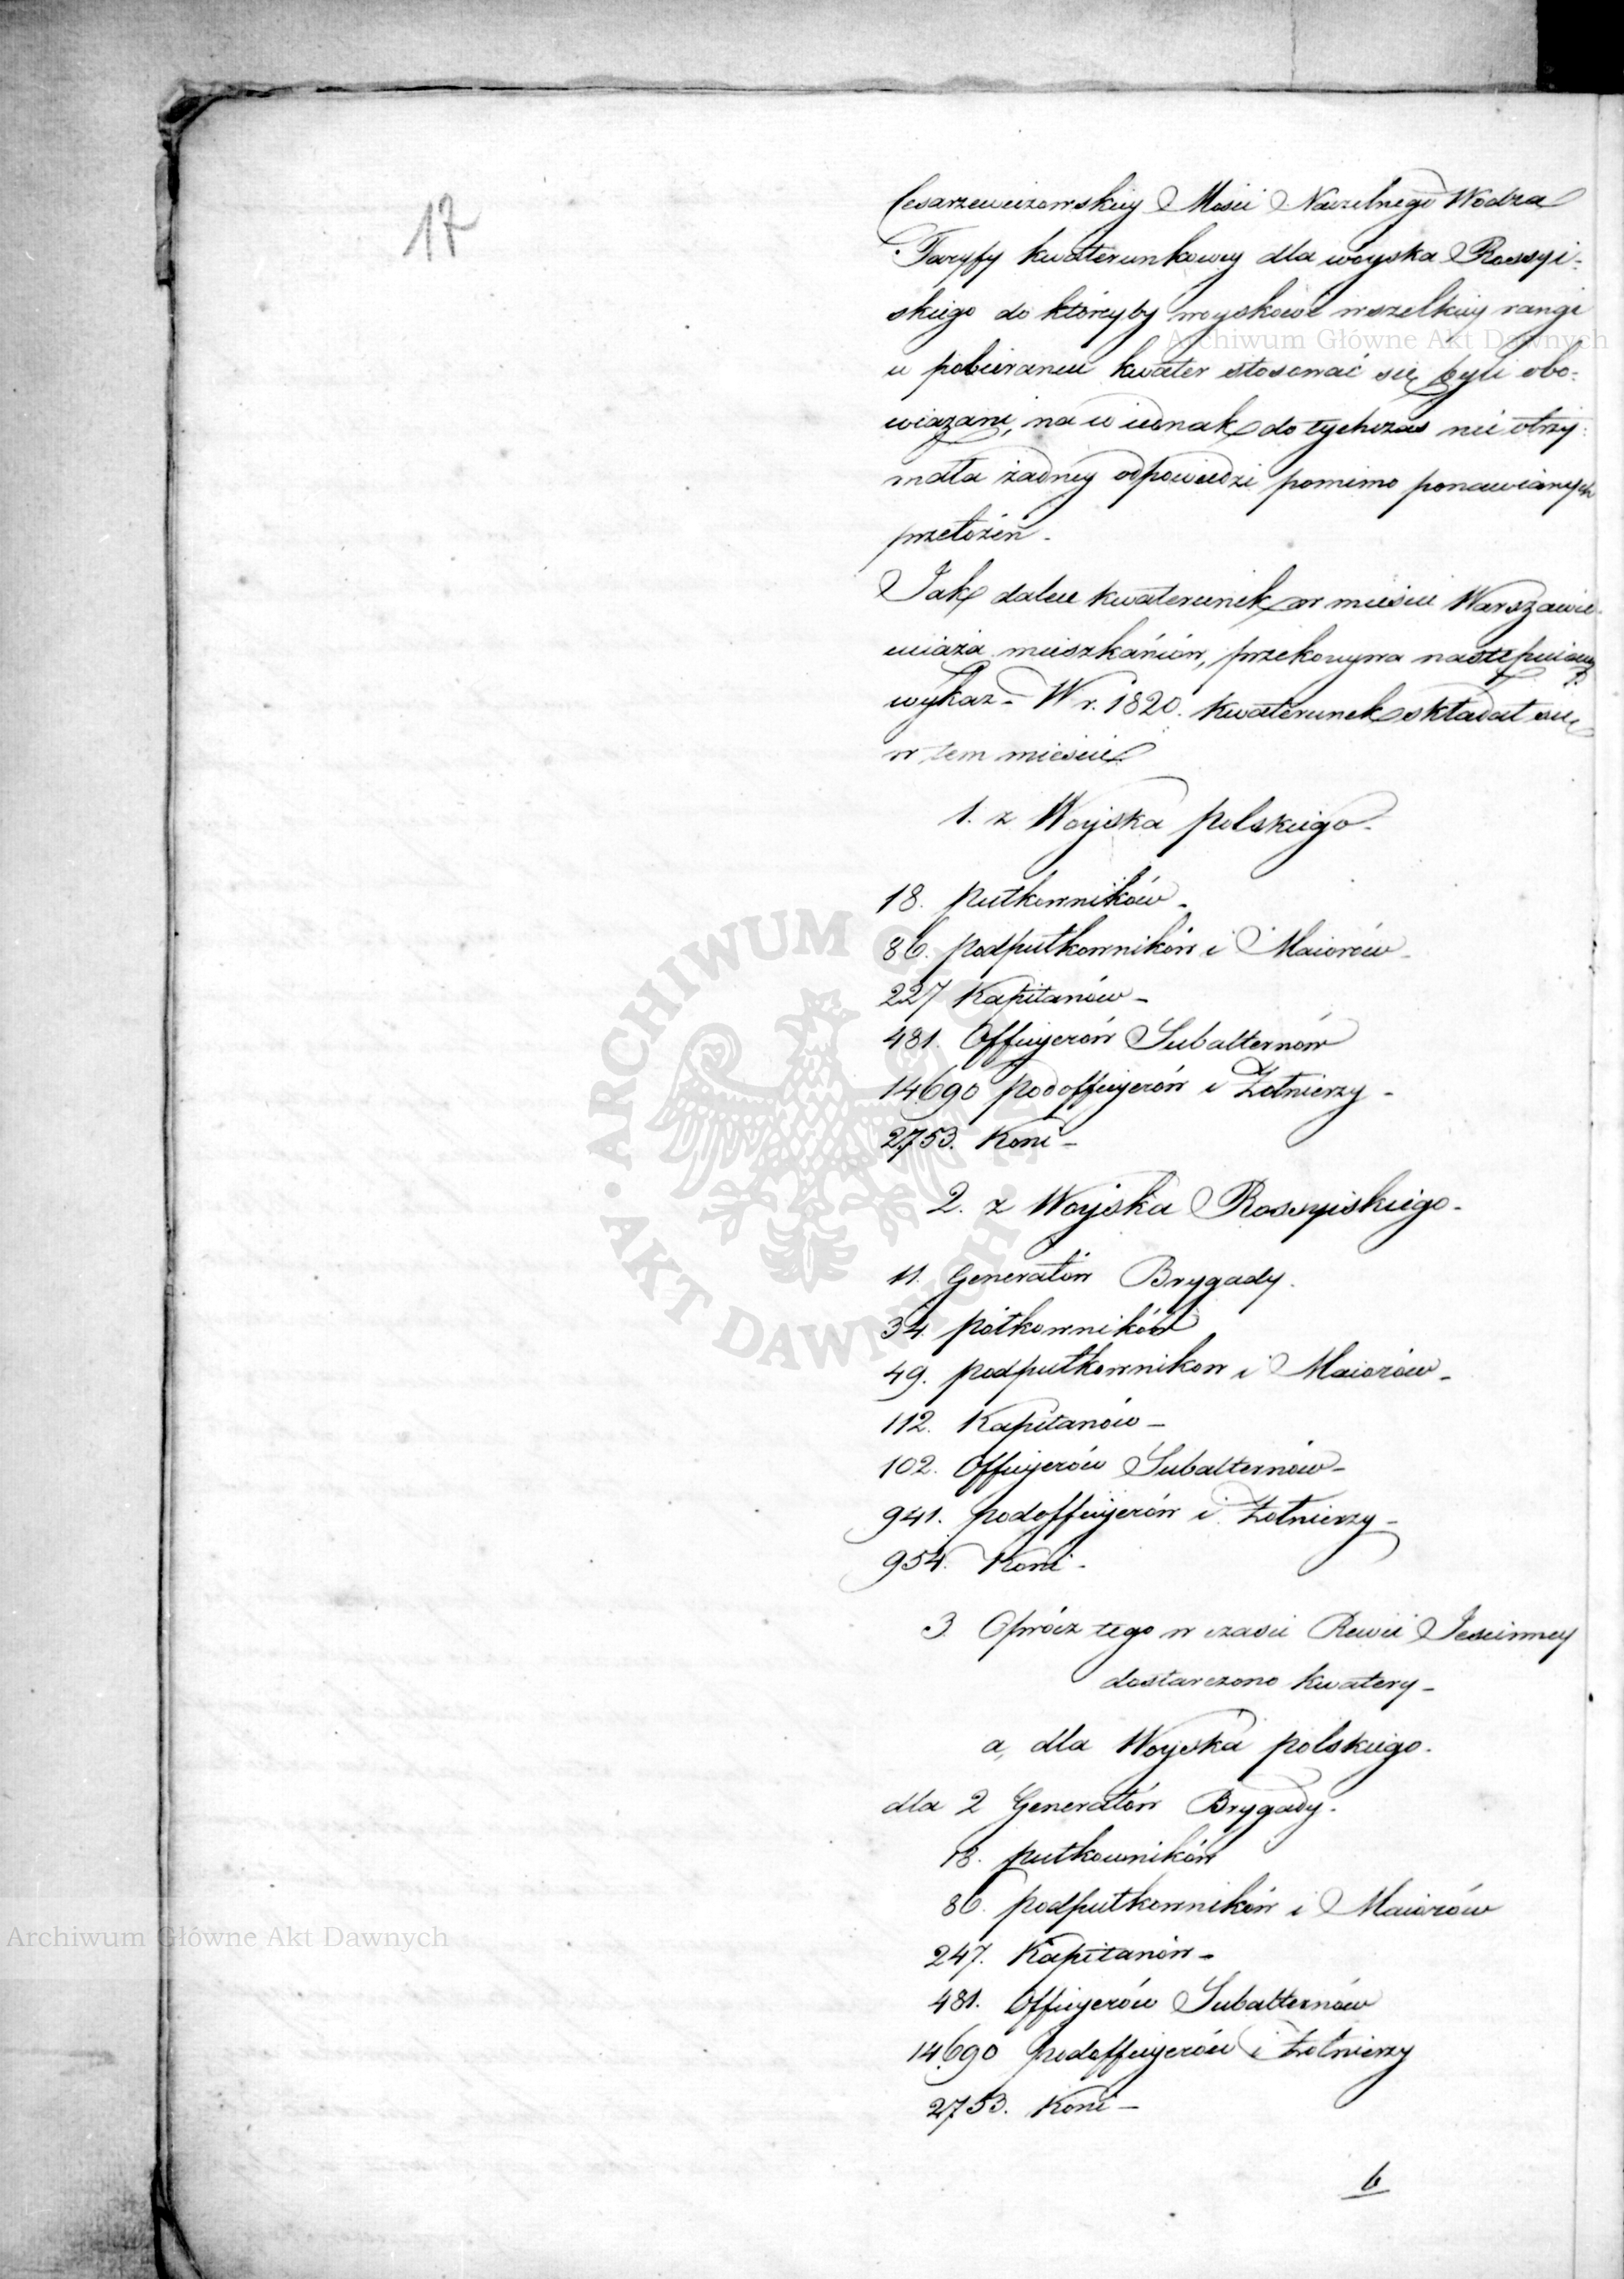 17
Cesarzewiczowskiey Mości Naczelnego Wodza
Taryfy kwaterunkowey dla woyska Rossyi-
skiego do któreyby woyskowi wszelkiey rangi
w pobieraniu kwater stosować się byli obo-
wiązani, na co iednak dotychczas nie otrzy-
mała żadney odpowiedzi pomimo ponawianych
przełożeń -
Jak dalece kwaterunek w mieście Warszawie
uciąża mieszkańców, przekonywa następuiący
wykaz - W r. 1820. kwaterunek składał się
w tem mieście
1. z Woyska polskiego -
18. pułkowników -
86. podpułkowników i Maiorów -
227 Kapitanów -
481. Officyerów Subalternów
14690 podofficyerów i Żołnierzy -
2753. Koni -
2. z Woyska Rossyiskiego -
11. Generałów Brygady.
34. półkowników
49. podpułkownikow i Maiorów -
112. Kapitanów -
102. Officyerów Subalternów -
941. podofficyerów i Żołnierzy -
954. Koni -
3. Oprócz tego w czasie Rewii Jesienney
dostarczono kwatery -
a, dla Woyska polskiego.
dla 2 Generałów Brygady.
18. pułkowników
86. podpułkowników i Maiorów
247. Kapitanów -
481. Officyerów Subalternów
14690 podofficyerów i Żołnierzy
2753. Koni -
b
Archiwum Główne Akt Dawnych
Archiwum Główne Akt Dawnych